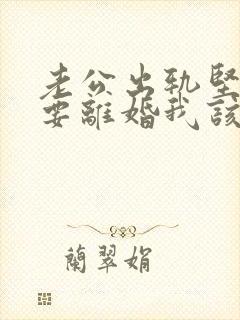 老公出轨坚
要離婚我該
蘭翠娟